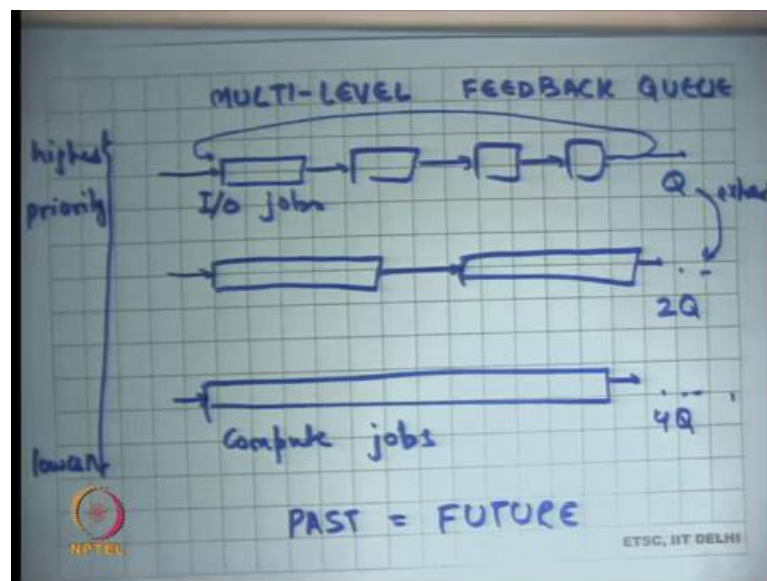 MULTI-LEVEL FEEDBACK QUEUE
highest
priority
I/O jobs
Q
2Q
Compute jobs
4Q
lowest
PAST = FUTURE
NPTEL
ETSC, IIT DELHI